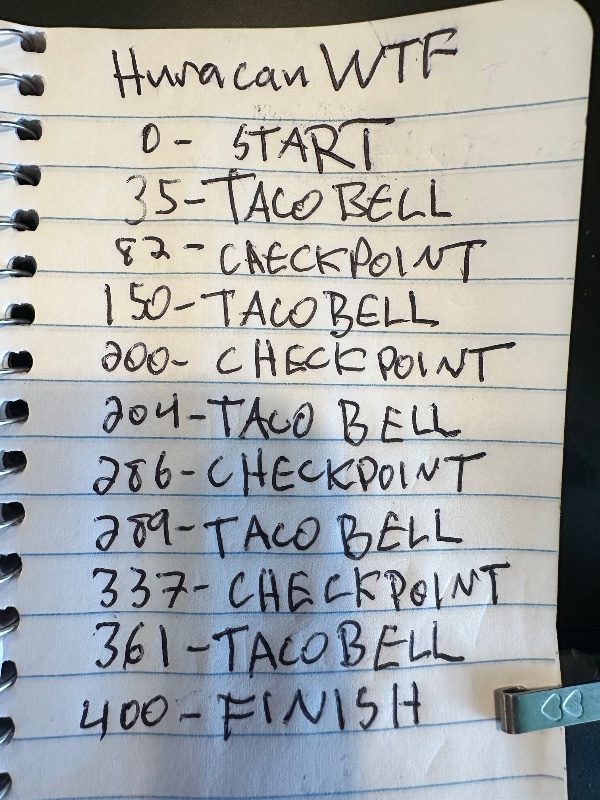 Huracan WTF
0 - START
35 - TACO BELL
82 - CHECKPOINT
150 - TACO BELL
200 - CHECKPOINT
204 - TACO BELL
286 - CHECKPOINT
289 - TACO BELL
337 - CHECKPOINT
361 - TACO BELL
400 - FINISH